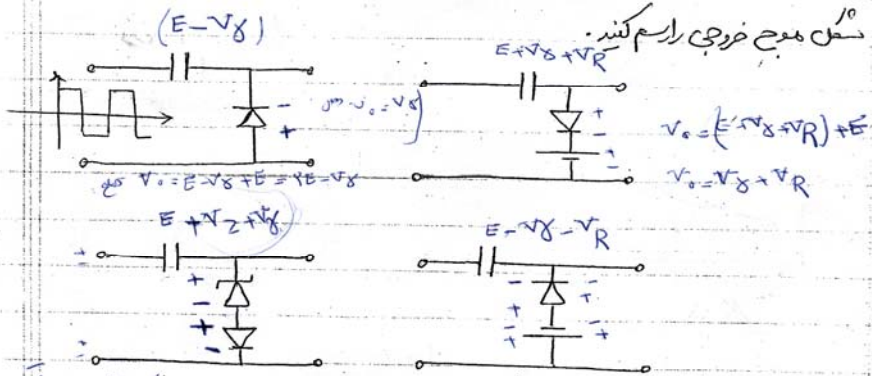 شکل موج خروجی را رسم کنید.
(E-Vγ)
E+Vγ+VR
V₀=Vγ
V₀=(E+Vγ+VR)+E
V₀=Vγ+VR
V₀=E-Vγ+E=2E-Vγ
E+VZ+Vγ
E-Vγ-VR